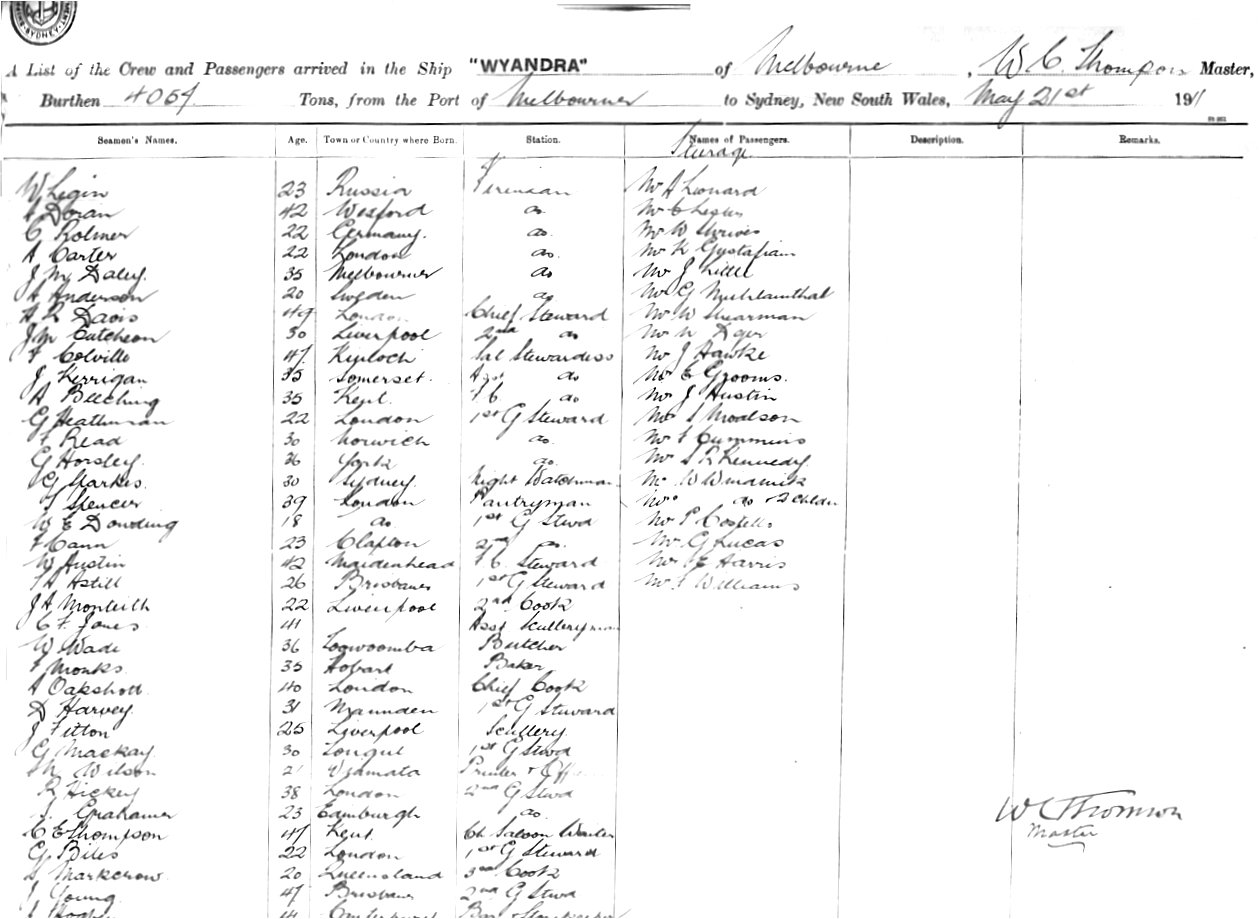 SYDNEY
A List of the Crew and Passengers arrived in the Ship "WYANDRA" of Melbourne, W. C. Thompson Master,
Burthen 4059 Tons, from the Port of Melbourne to Sydney, New South Wales, May 21st 1911
Seamen's Names. Age. Town or Country where Born. Station. Names of Passengers. Description. Remarks.
Steerage
W Legin 23 Russia Fireman Mr A Leonard
A Doran 42 Wexford do Mr C Lester
C Rolmer 22 Germany. do. Mr W
A Carter 22 London do. Mr K Gustafson
J Mc Daley. 35 Melbourne do Mr J Little
A Anderson 20 Sweden do Mr G Muhlanthal
A R Davis 49 London Chief Steward Mr W Shearman
J Mc Cutcheon 30 Liverpool 2nd do Mr Dyer
F Colville 47 Kinloch Sal Stewardess Mr J Hawke
J Kerrigan 35 Somerset. Asst do Mr E Grooms.
A Beeching 35 Kent. F C do Mr J Austin
G Heathman 22 London 1st G Steward Mr Moalson
F Read 30 Norwich do. Mr F Cummins
G Horsley. 26 York do. Mr S R Kennedy
G Sparkes 30 Sydney. Night Watchman Mr W
S Spencer 39 London Pantryman do + 2 Childn
W E Dowding 18 do. 1st G Stwd Mr P Costello
F Cann 23 Clapton 2nd do. Mr G Lucas
W Austin 42 Maidenhead F. C. Steward Mr E Harris
Astill 26 Brisbane 1st G Steward Mr F Williams
J A Monteith 22 Liverpool 2nd Cook
C F Jones 41 Asst Sculleryman
W Wade 36 Toowoomba Butcher
F Monks. 35 Hobart Baker
A Oakshott. 40 London Chief Cook
D Harvey. 31 1st G Steward
J Fitton 25 Liverpool Scullery.
G Mackay. 30 1st G Stwd
Wilson 21 Printer +
R Hickey 38 London 2nd G Stwd
Grahame 23 Edinburgh do.
C E Thompson 47 Kent. Ch Saloon Waiter
G. Biles 22 London 1st G Steward
Markcrow. 20 Queensland 3rd Cook
J Young 47 Brisbane 2nd G Stwd
Canterbury Bar + Storekeeper
W C Thomson
Master